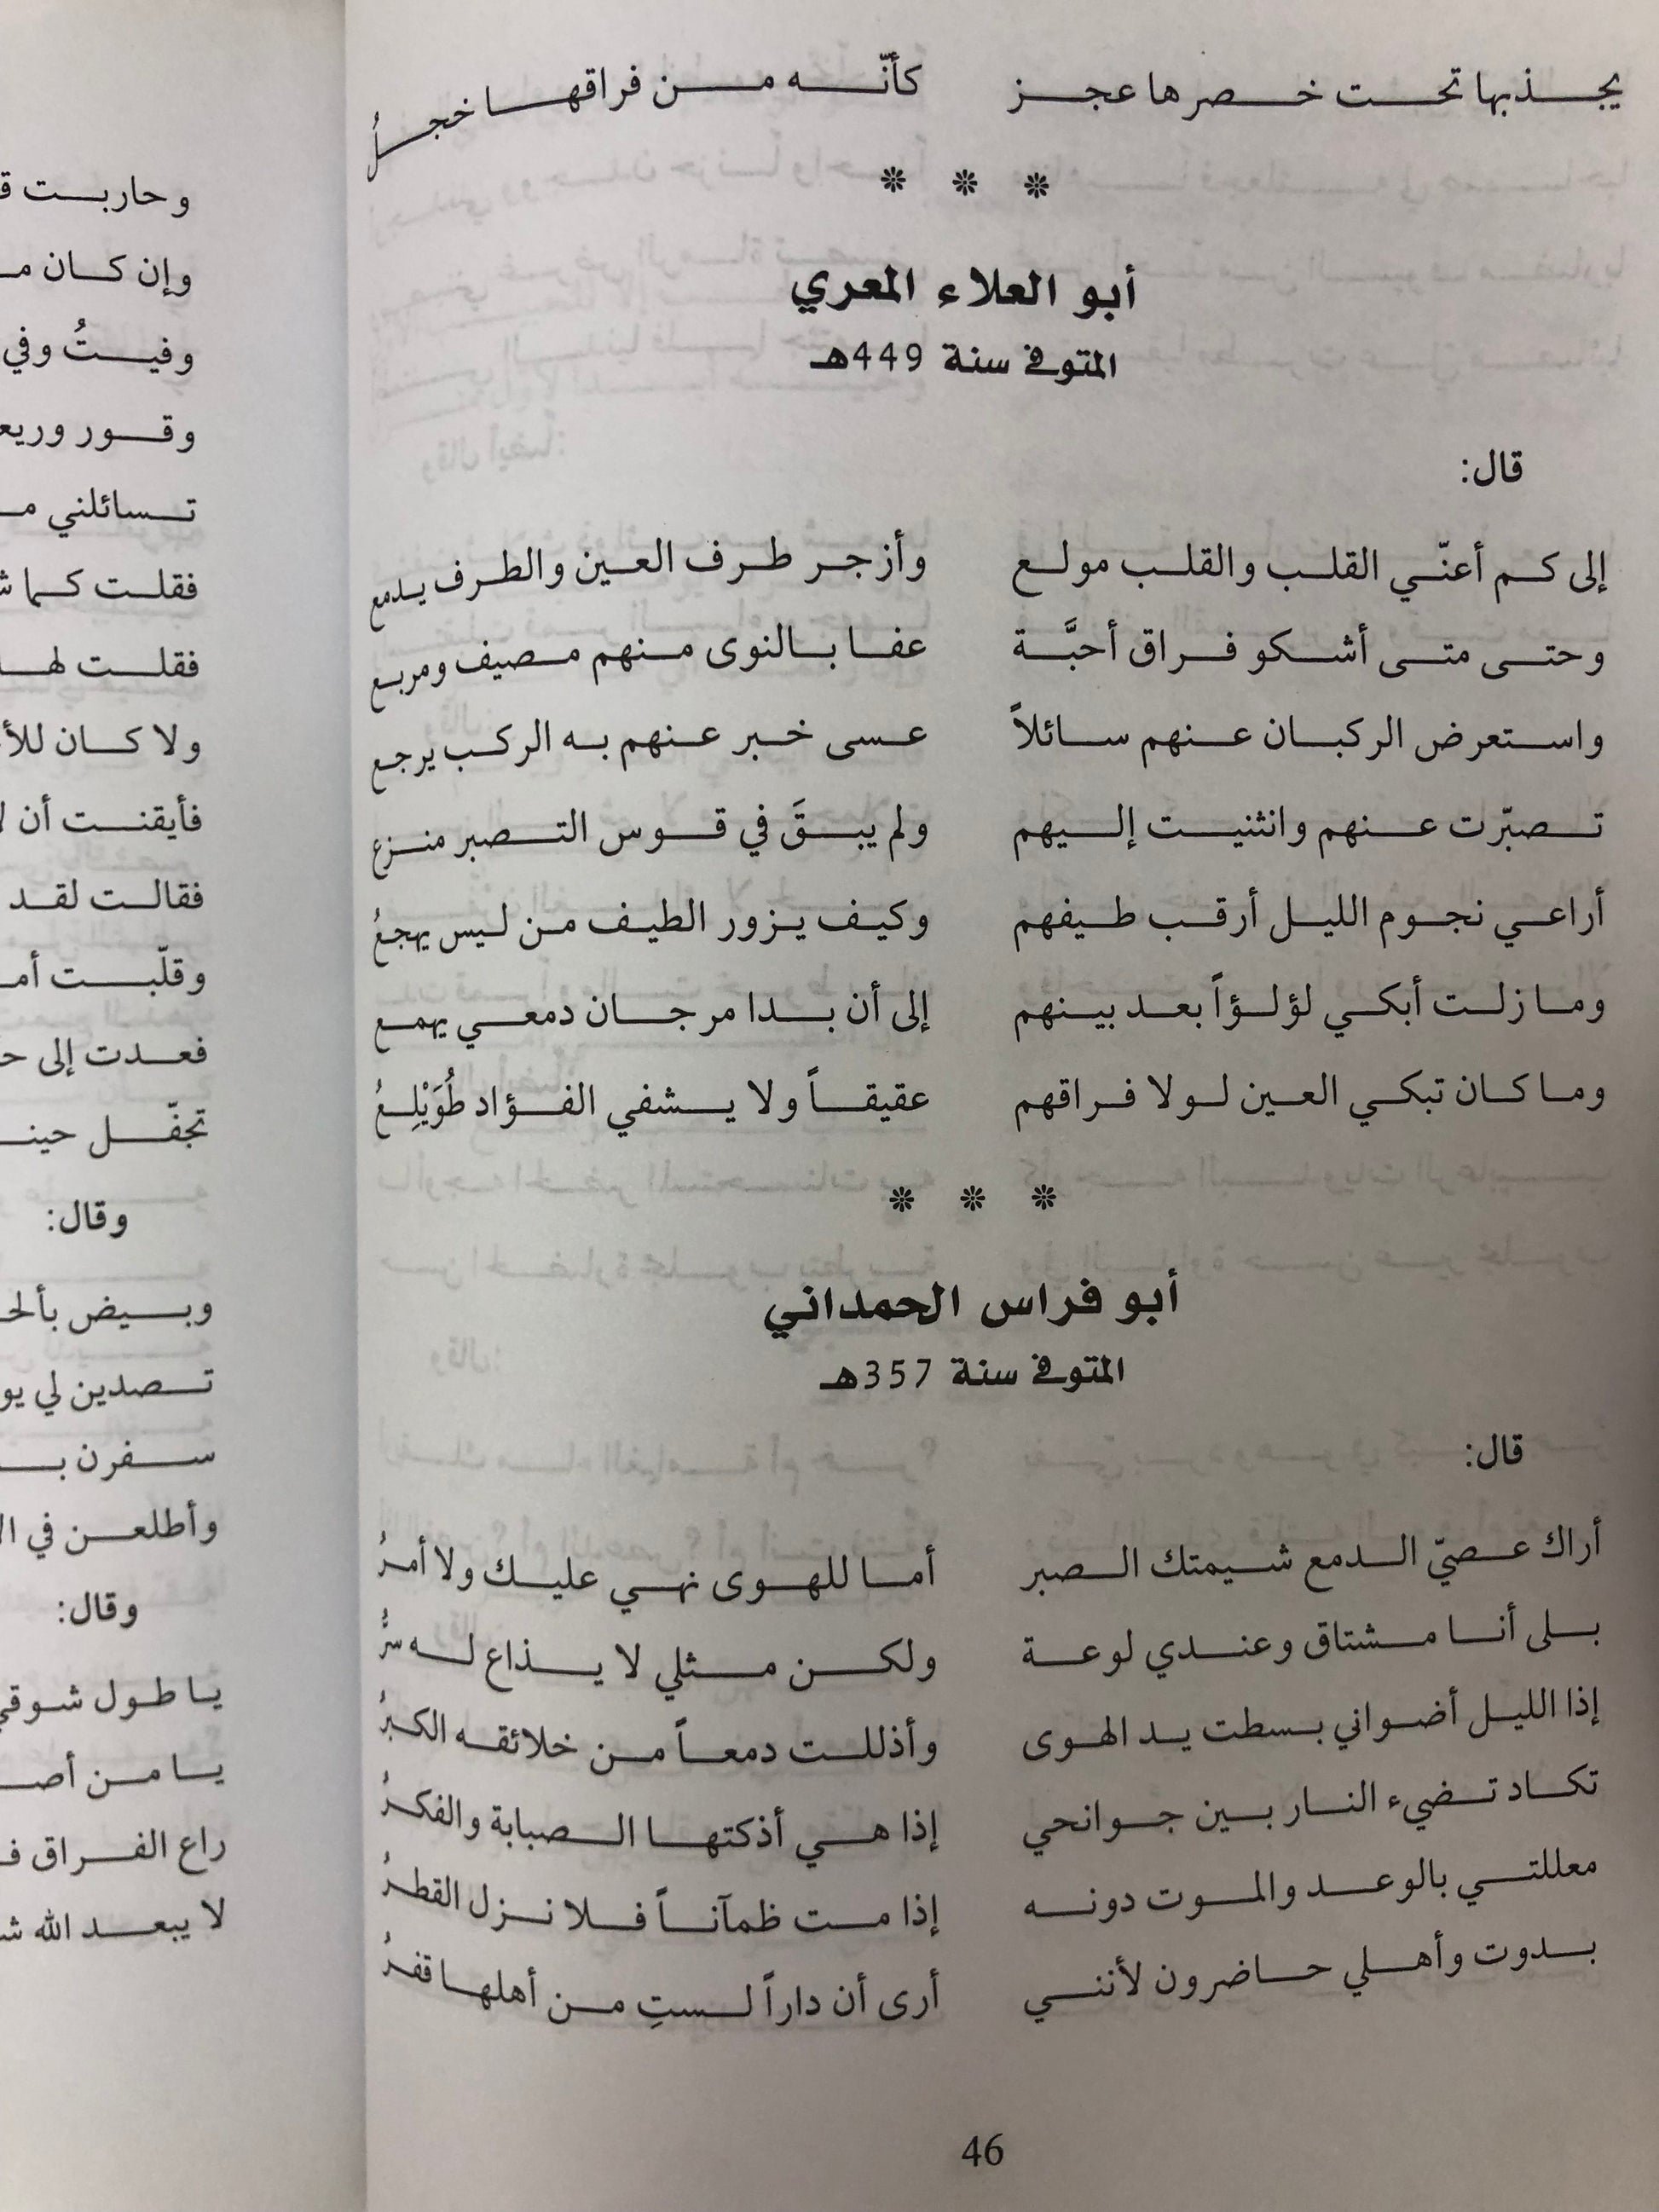 يجذبها تحت خصرها عجز كأنّه من فراقها خجلُ
* * *
أبو العلاء المعري
المتوفى سنة 449هـ
قال:
إلى كم أعنّي القلب والقلب مولع وأزجر طرف العين والطرف يدمع
وحتى متى أشكو فراق أحبَّة عفا بالنوى منهم مصيف ومربع
واستعرض الركبان عنهم سائلاً عسى خبر عنهم به الركب يرجع
تصبّرت عنهم وانثنيت إليهم ولم يبقَ في قوس التصبر منزع
أراعي نجوم الليل أرقب طيفهم وكيف يزور الطيف من ليس يهجعُ
وما زلت أبكي لؤلؤاً بعد بينهم إلى أن بدا مرجان دمعي يهمع
وما كان تبكي العين لولا فراقهم عقيقاً ولا يشفي الفؤاد طُوَيْلِعُ
* * *
أبو فراس الحمداني
المتوفى سنة 357هـ
قال:
أراك عصيّ الدمع شيمتك الصبر أما للهوى نهي عليك ولا أمرُ
بلى أنا مشتاق وعندي لوعة ولكن مثلي لا يذاع له سرُّ
إذا الليل أضواني بسطت يد الهوى وأذللت دمعاً من خلائقه الكبرُ
تكاد تضيء النار بين جوانحي إذا هي أذكتها الصبابة والفكرُ
معللتي بالوعد والموت دونه إذا مت ظمآناً فلا نزل القطرُ
بدوت وأهلي حاضرون لأنني أرى أن داراً لستِ من أهلها قفرُ
46
وحاربت
وإن كان
وفيتُ وفي
وقور
تسائلني
فقلت كما
فقلت
ولا كان
فأيقنت أن
فقالت لقد
وقلّبت
فعدت إلى
تجفّل
وقال:
وبيض
تصدين لي
سفرن
وأطلعن في
وقال:
يا طول شوقي
يا من
راع الفراق
لا يبعد الله